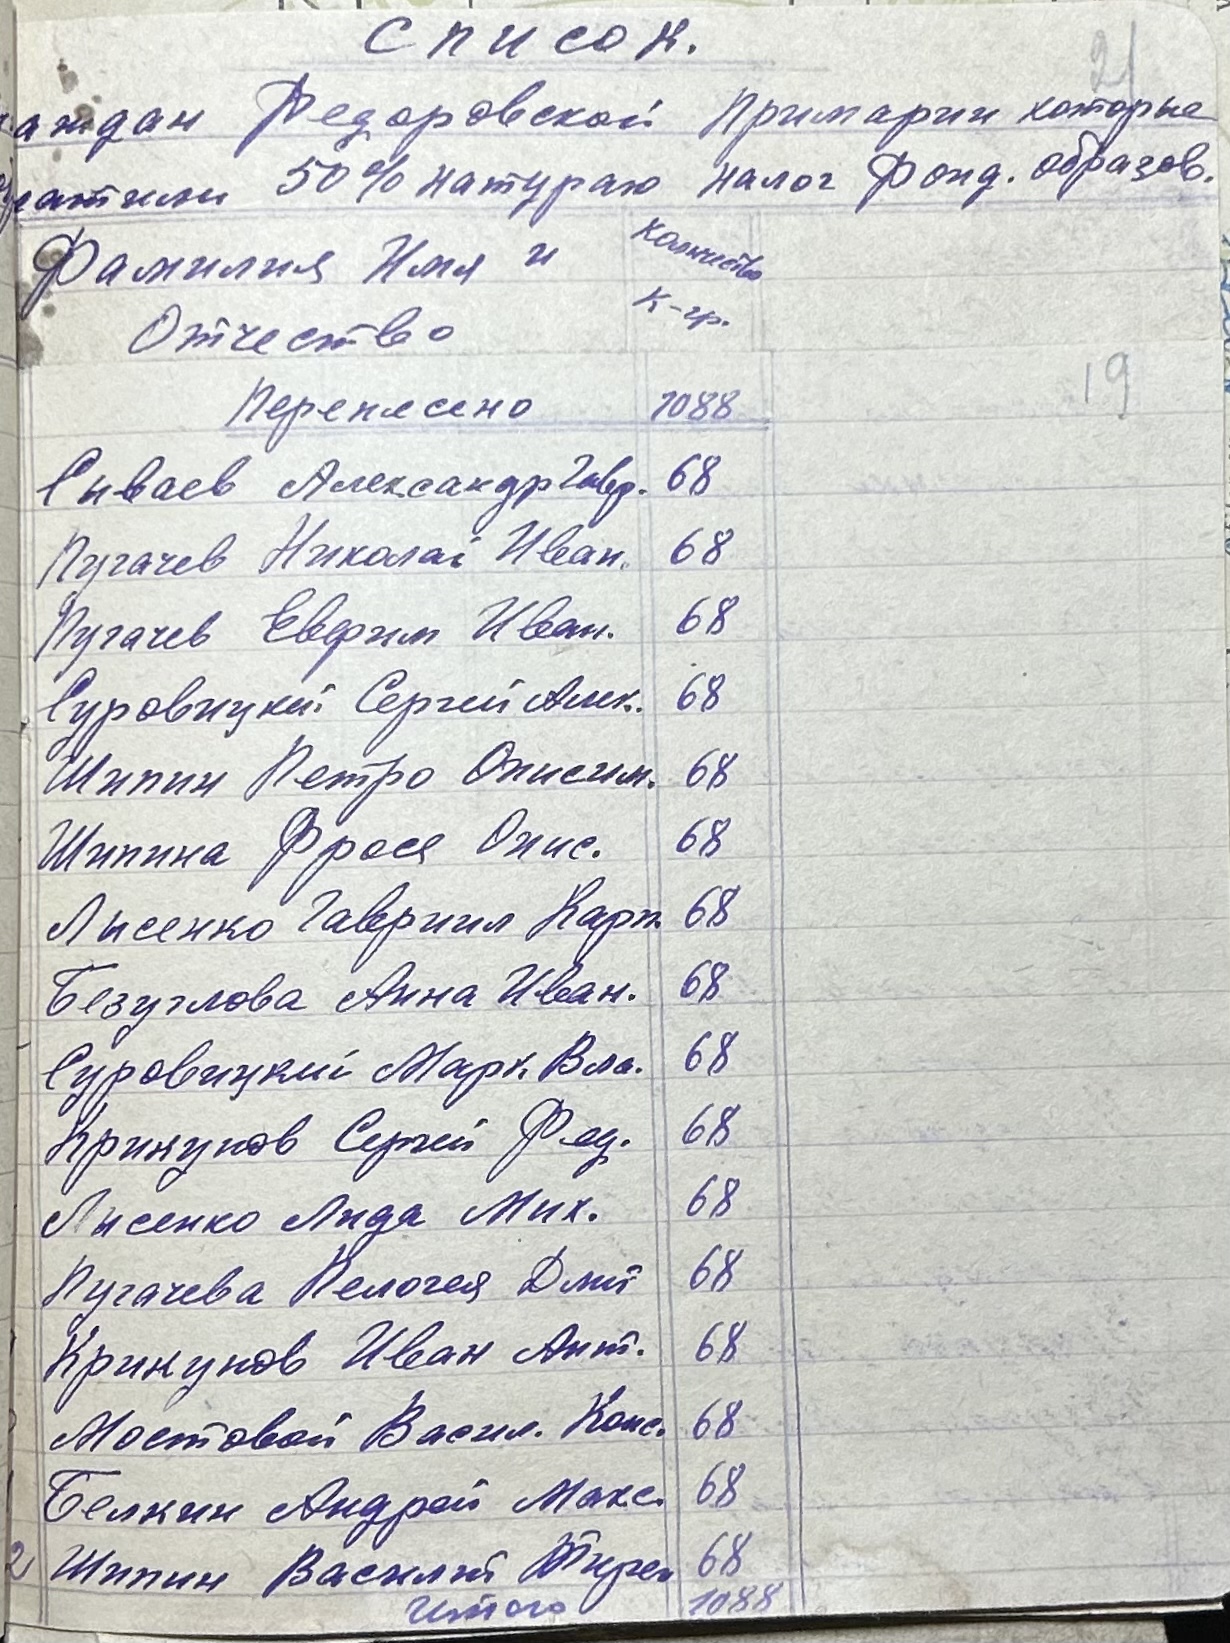 Список.
21
аждан Федоровской Примарии которые
уплатили 50% натураю налог Фонд. образов.
Фамилия Имя и
Отчество
Количество
К-гр.
19
Перенесено 1088
Сываев Александр Гавр. 68
Пугачев Николай Иван. 68
Пугачев Евфим Иван. 68
Суровицкий Сергей Алек. 68
Шипин Петро Онисим. 68
Шипина Фрося Онис. 68
Лысенко Гавриил Карп. 68
Безуглова Анна Иван. 68
Суровицкий Марк Вла. 68
Крикунов Сергей Фед. 68
Лысенко Лида Мих. 68
Пугачева Пелогея Дмит 68
Крикунов Иван Ант. 68
Мостовой Васил. Конс. 68
Белкин Андрей Макс. 68
Шипин Василий 68
Итого 1088